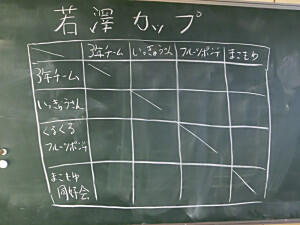 若澤カップ
3年チーム いっきゅうさん フルーツポンチ まこもゆ
3年チーム
いっきゅうさん
くるくる
フルーツポンチ
まこもゆ
同好会